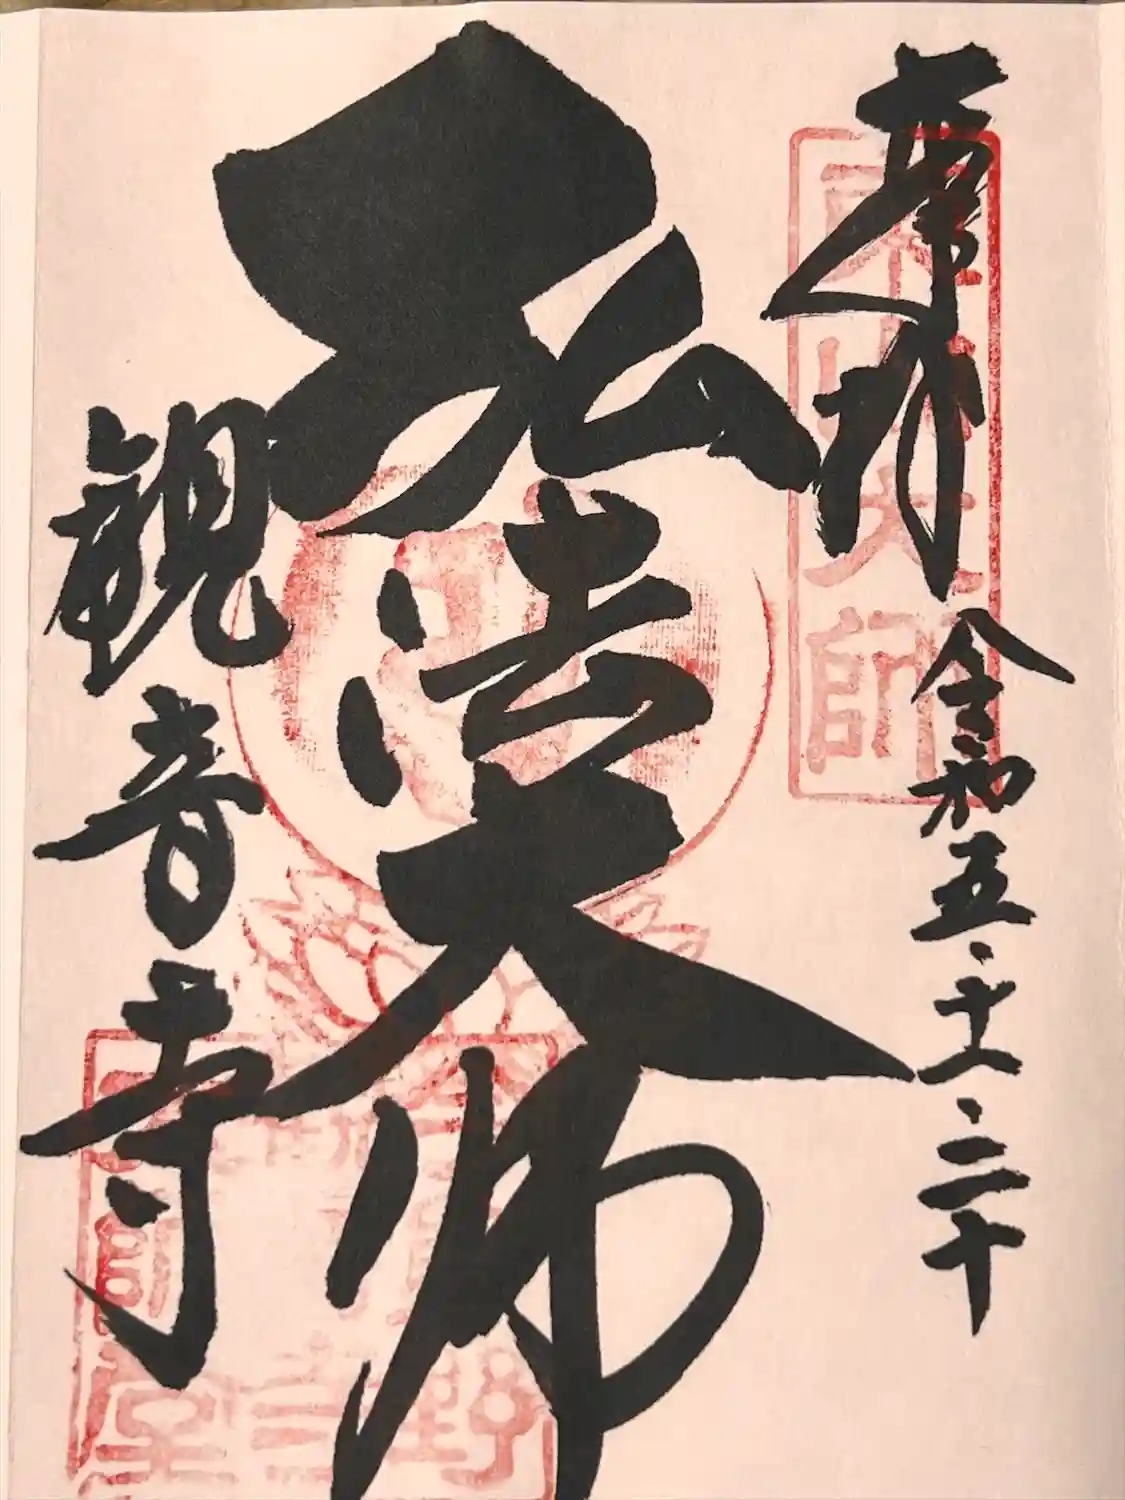 奉拝
令和五、十一、二十
弘法大師
観音寺
大師